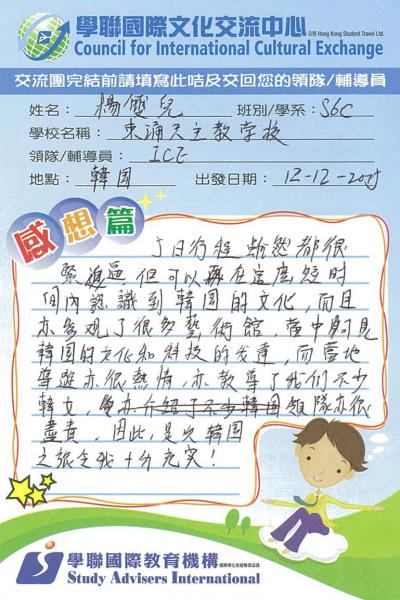 學聯國際文化交流中心 O/B Hong Kong Student Travel Ltd.
Council for International Cultural Exchange
交流團完結前請填寫此咭及交回您的領隊/輔導員
姓名： 楊雪兒 班別/學系： S6C
學校名稱： 東涌天主教学校
領隊/輔導員： ICE
地點： 韓国 出發日期： 12-12-2015
感想篇
5日行程 雖然都很
緊逼 但可以再在這麼短時
間內認識到韓国的文化，而且
亦參观了很多藝術館，當中可見
韓国的文化和科技的发達，而當地
導遊亦很熱情，亦教導了我們不少
韓文，領隊亦很
盡責，因此，是次韓国
之旅令我十分充実！
學聯國際教育機構
Study Advisers International